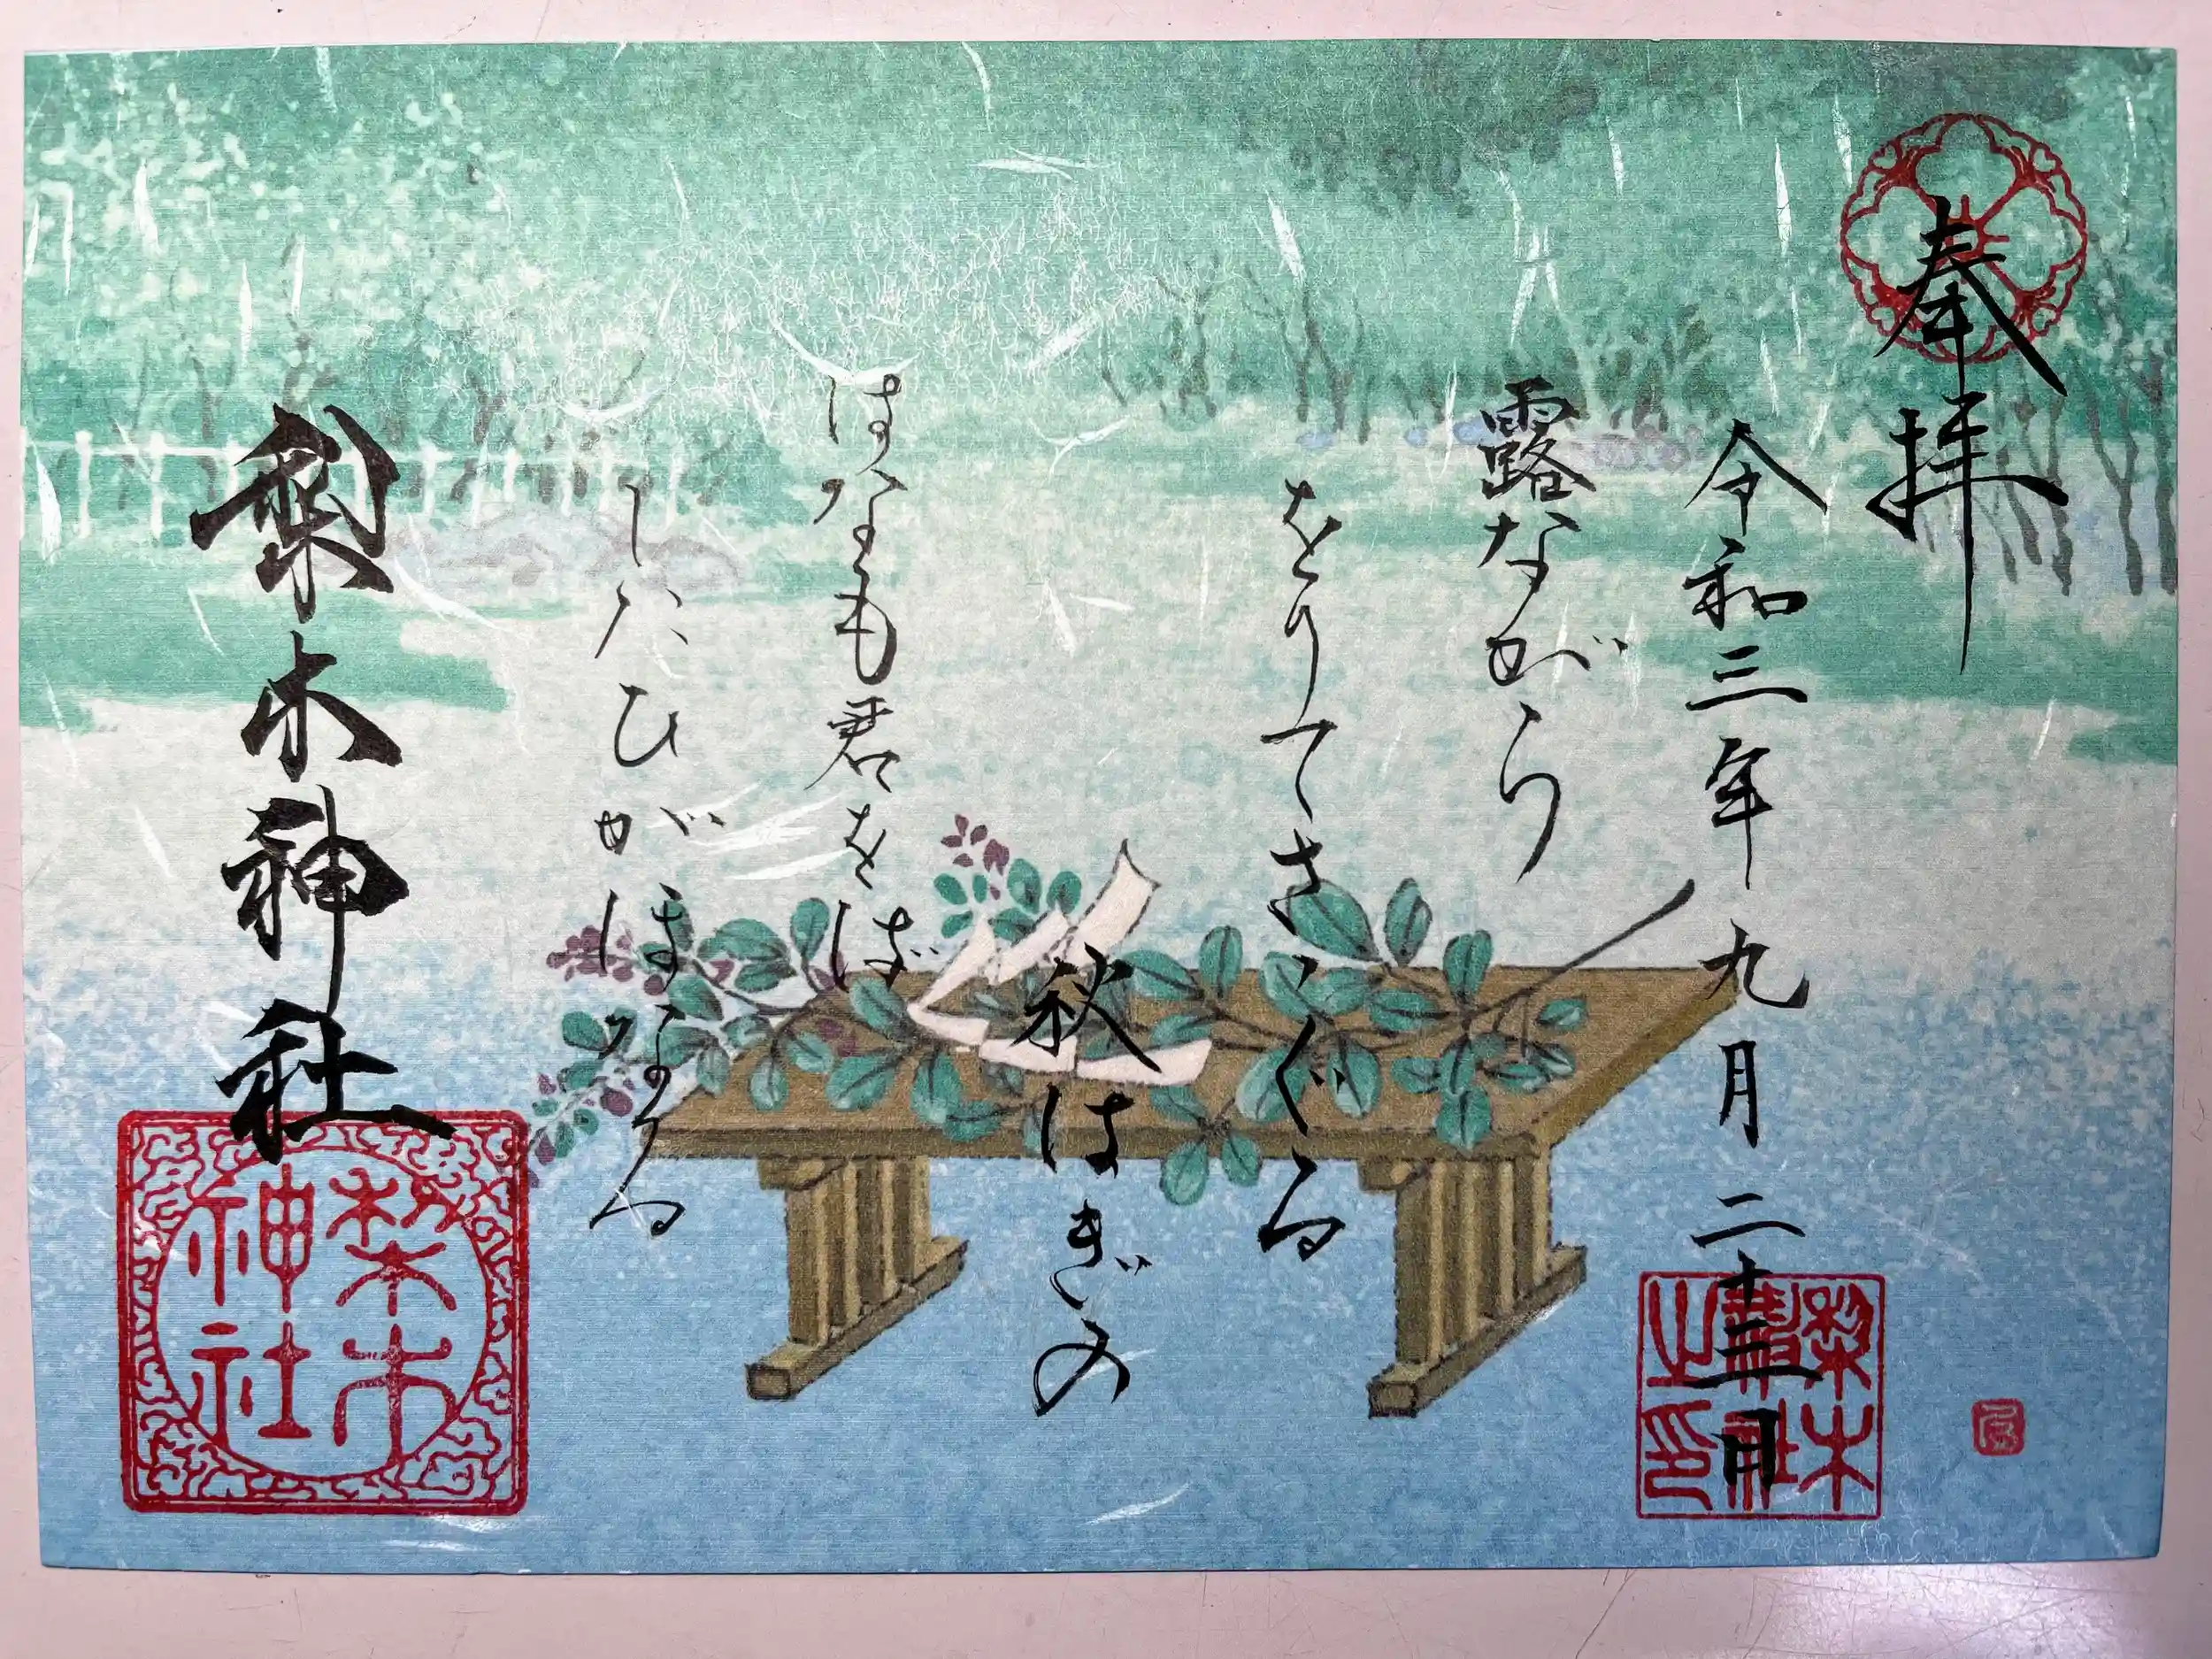 奉拝
令和三年九月二十三日
露ながら
をりてさゝぐる
秋はぎの
はなも君をば
したひがほなる
梨木神社
梨木神社
梨木神社之印